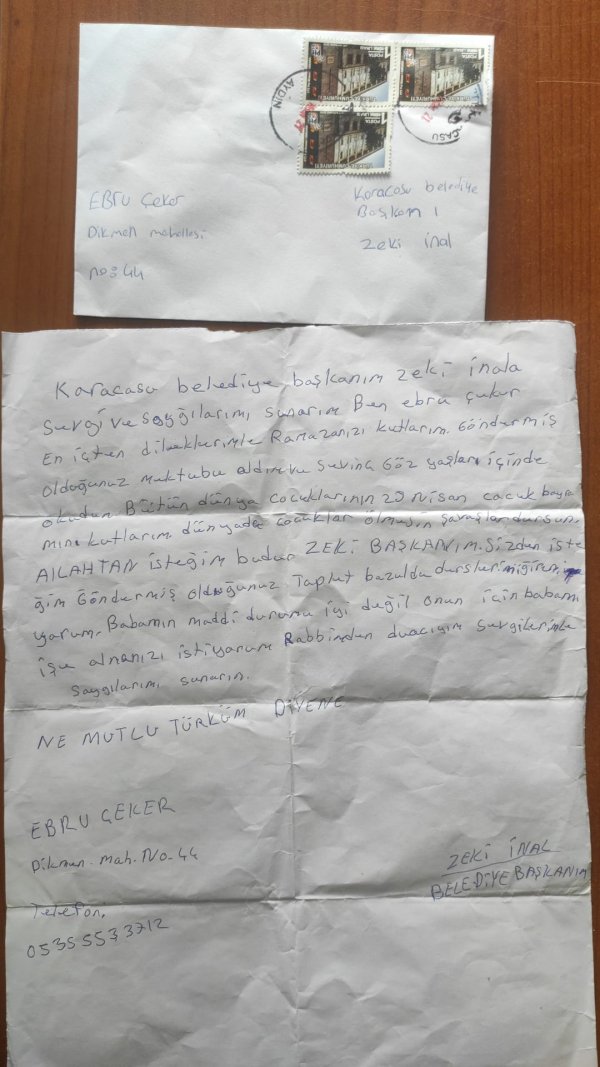 TÜRKİYE CUMHURİYETİ
POSTA
AYDIN
EBRU Çeker
Dikmen mahellesi
no: 44
Karacasu belediye
Başkanı
Zeki inal
Karacasu belediye başkanım zeki inala
Sevgi ve saygılarımı, sunarım Ben ebru çukur
En içten dileklerimle Ramazanızı kutlarım Göndermiş
olduğunuz mektubu aldım ve sevinç Göz yaşları içinde
okudum Bütün dünya cocuklarının 23 Nisan cocuk bayra
mını kutlarım dünyada cocuklar ölmesin savaşlar dursun
AllAHTAN isteğim budur ZEKİ BAŞKANIM. Sizden iste
ğim Göndermiş olduğunuz Taplet bozuldu derslerimi giremi
yorum. Babamın maddi durumu iyi değil onun için babamı
işe almanızı istiyorum Rabbimden duacıyım sevgilerimle
Saygılarımı sunarım.
NE MUTLU TÜRKÜM DİYENE
EBRU ÇEKER
Dikmen. mah. No-44
Telefon.
0535 553 3712
ZEKİ İNAL
BELEDİYE BAŞKANIM